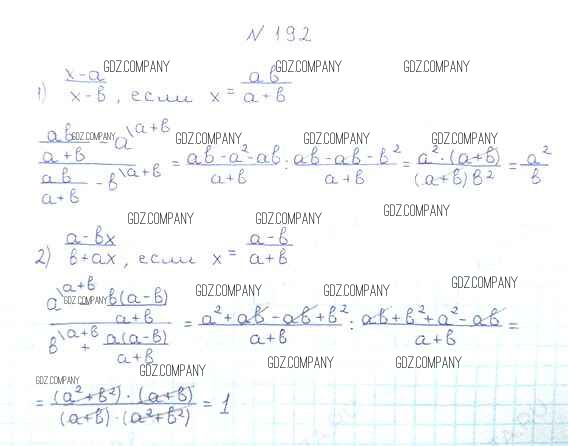 N 192
GDZ.COMPANY GDZ.COMPANY GDZ.COMPANY
1) (x-a)/(x-b), если x = ab/(a+b)
GDZ.COMPANY GDZ.COMPANY GDZ.COMPANY
(ab/(a+b) - a\a+b)/(ab/(a+b) - b\a+b) = (ab-a²-ab)/(a+b) : (ab-ab-b²)/(a+b) = (a²·(a+b))/((a+b)b²) = a²/b
GDZ.COMPANY GDZ.COMPANY GDZ.COMPANY
2) (a-bx)/(b+ax), если x = (a-b)/(a+b)
GDZ.COMPANY GDZ.COMPANY GDZ.COMPANY GDZ.COMPANY
(a\a+b b(a-b)/(a+b))/(b\a+b + a(a-b)/(a+b)) = (a²+ab-ab+b²)/(a+b) : (ab+b²+a²-ab)/(a+b) =
GDZ.COMPANY GDZ.COMPANY GDZ.COMPANY GDZ.COMPANY
= ((a²+b²)·(a+b))/((a+b)·(a²+b²)) = 1